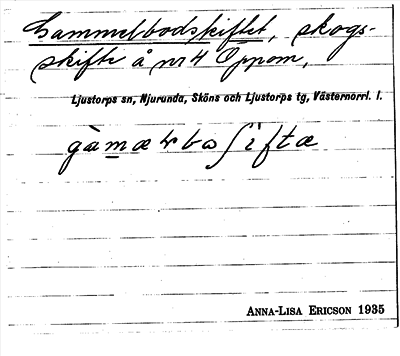 Gammelbodskiftet, skogs-
skifte å nr 4 Oppom,
Ljustorps sn, Njurunda, Sköns och Ljustorps tg, Västernorrl. l.
ANNA-LISA ERICSON 1935